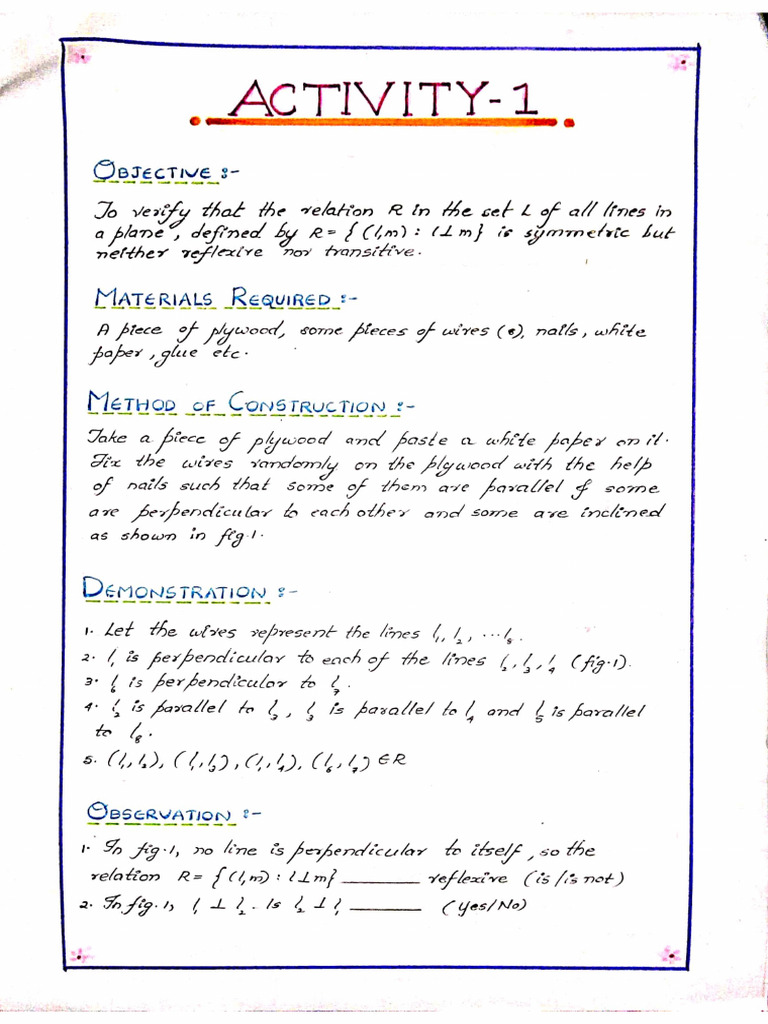 ACTIVITY-1
OBJECTIVE :-
To verify that the relation R in the set L of all lines in
a plane, defined by R = { (l,m) : l⊥m} is symmetric but
neither reflexive nor transitive.
MATERIALS REQUIRED :-
A piece of plywood, some pieces of wires (8), nails, white
paper, glue etc.
METHOD OF CONSTRUCTION :-
Take a piece of plywood and paste a white paper on it.
Fix the wires randomly on the plywood with the help
of nails such that some of them are parallel & some
are perpendicular to each other and some are inclined
as shown in fig.1.
DEMONSTRATION :-
1. Let the wires represent the lines l₁, l₂, ...l₈.
2. l₁ is perpendicular to each of the lines l₂, l₃, l₄ (fig.1).
3. l₆ is perpendicular to l₇.
4. l₂ is parallel to l₃, l₃ is parallel to l₄ and l₅ is parallel
to l₈.
5. (l₁, l₂), (l₁, l₃), (l₁, l₄), (l₆, l₇) ∈ R
OBSERVATION :-
1. In fig.1, no line is perpendicular to itself, so the
relation R = { (l,m) : l⊥m} ________ reflexive (is/is not)
2. In fig.1, l₁ ⊥ l₂. Is l₂ ⊥ l₁ ________ (Yes/No)